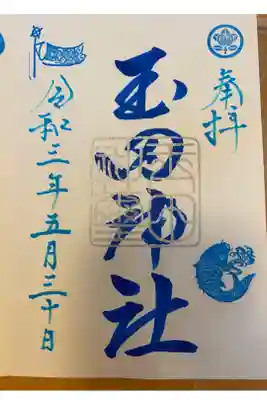 奉拝
玉田神社
令和三年五月三十日